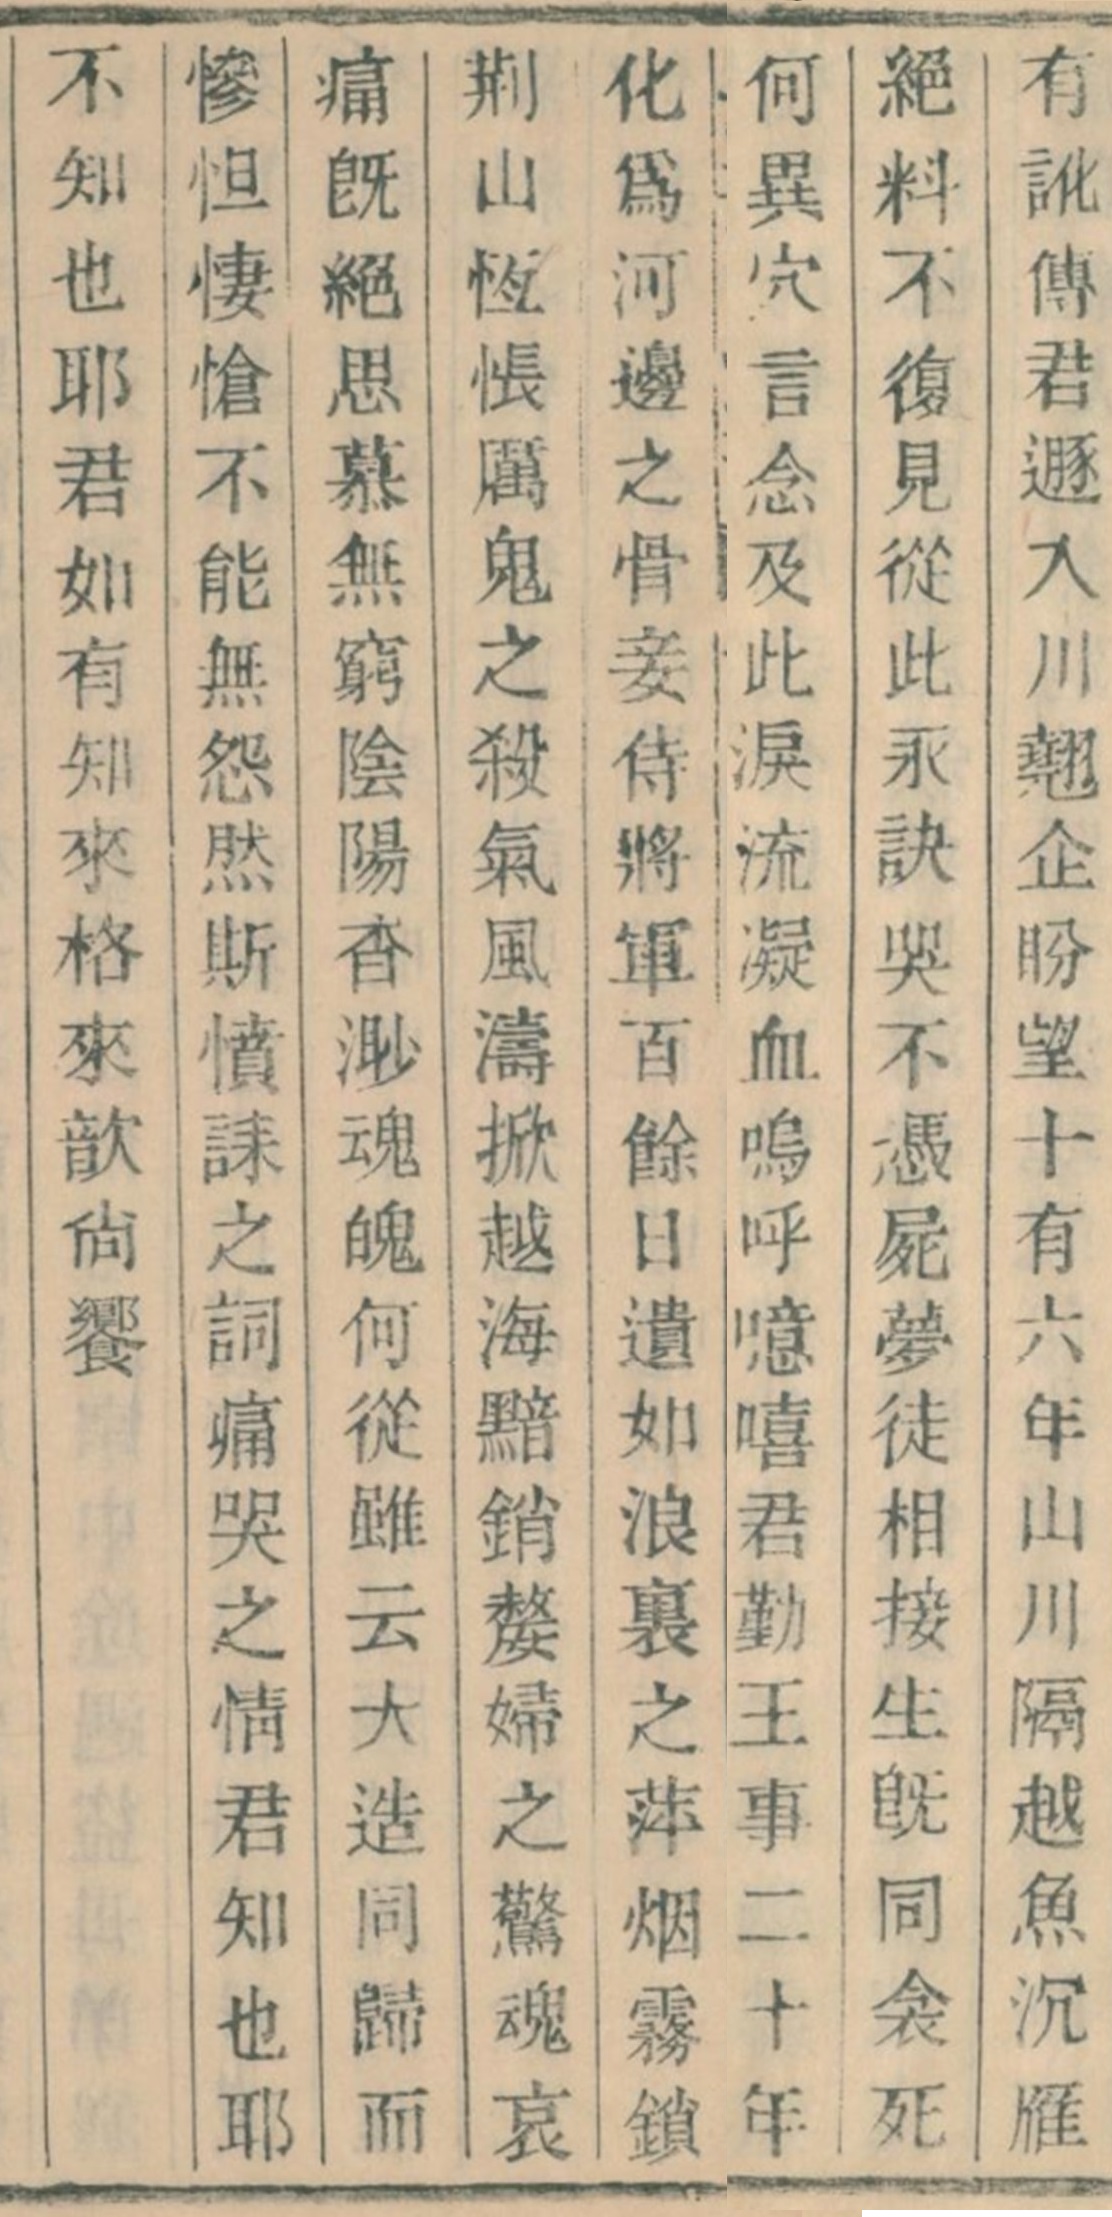 有訛傳君遯入川翹企盼望十有六年山川隔越魚沉雁
絕料不復見從此永訣哭不憑屍夢徒相接生既同衾死
何異穴言念及此淚流凝血嗚呼噫嘻君勤王事二十年
化爲河邊之骨妾侍將軍百餘日遺如浪裏之萍烟霧鎖
荆山恆悵厲鬼之殺氣風濤掀越海黯銷嫠婦之驚魂哀
痛既絕思慕無窮陰陽杳渺魂魄何從雖云大造同歸而
慘怛悽愴不能無怨然斯憤誄之詞痛哭之情君知也耶
不知也耶君如有知來格來歆尙饗